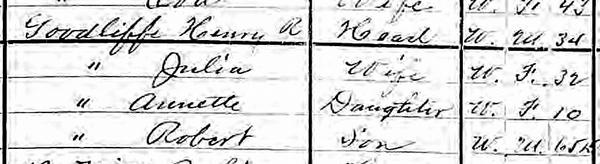 " Wife W. F. 43
Goodliffe Henry R Head W. M. 34
" Julia Wife W. F. 32
" Annette Daughter W. F. 10
" Robert Son W. M.